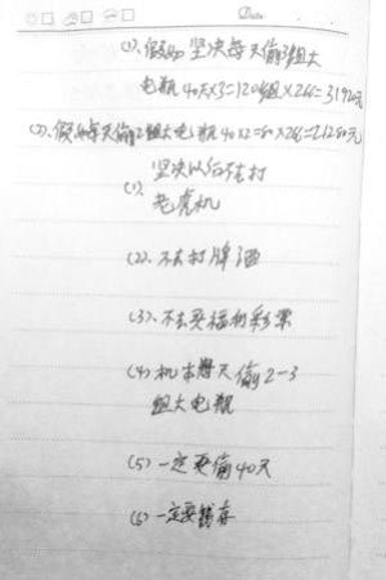 Date
(1)、假如坚决每天偷3组大
电瓶40天×3=120组×266=31920元
(2)、假如每天偷2组大电瓶40×2=80×266=21280元
(1)、坚决以后不去打
老虎机
(2)、不去打牌
(3)、不去买福利彩票
(4)、机本每天偷2-3
组大电瓶
(5)一定要偷40天
(6)一定要储存